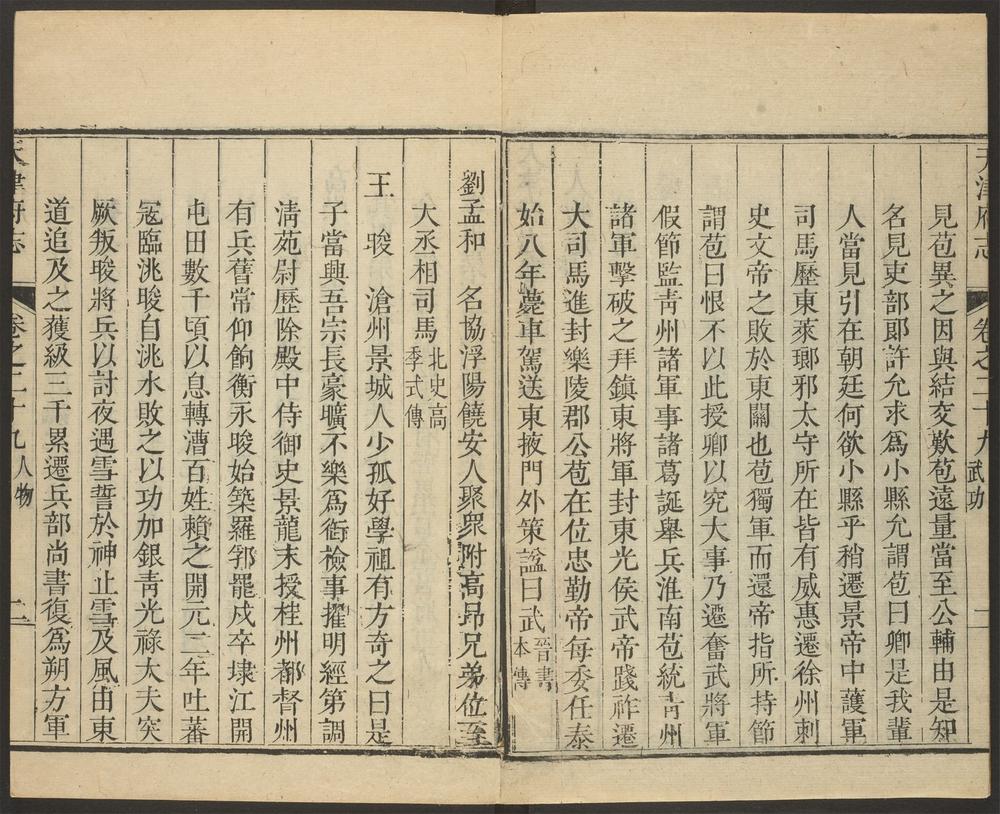 天津府志　卷之二十九　武功　一
見苞異之因與結交歎苞遠量當至公輔由是知
名見吏部郎許允求爲小縣允謂苞曰卿是我輩
人當見引在朝廷何欲小縣乎稍遷景帝中護軍
司馬歷東萊瑯邪太守所在皆有威惠遷徐州刺
史文帝之敗於東關也苞獨軍而還帝指所持節
謂苞曰恨不以此授卿以究大事乃遷奮武將軍
假節監靑州諸軍事諸葛誕舉兵淮南苞統靑州
諸軍擊破之拜鎮東將軍封東光侯武帝踐祚遷
大司馬進封樂陵郡公苞在位忠勤帝每委任泰
始八年薨車駕送東掖門外策諡曰武晉書本傳
劉孟和　名協浮陽饒安人聚衆附高昂兄弟位至
大丞相司馬北史高季式傳
王　晙　滄州景城人少孤好學祖有方奇之曰是
子當興吾宗長豪曠不樂爲銜檢事擢明經第調
淸苑尉歷除殿中侍御史景龍末授桂州都督州
有兵舊常仰餉衡永晙始築羅郛罷戍卒埭江開
屯田數千頃以息轉漕百姓賴之開元二年吐蕃
寇臨洮晙自洮水敗之以功加銀靑光祿大夫突
厥叛晙將兵以討夜遇雪誓於神止雪及風由東
道追及之獲級三千累遷兵部尚書復爲朔方軍
天津府志　卷之二十九　人物　二